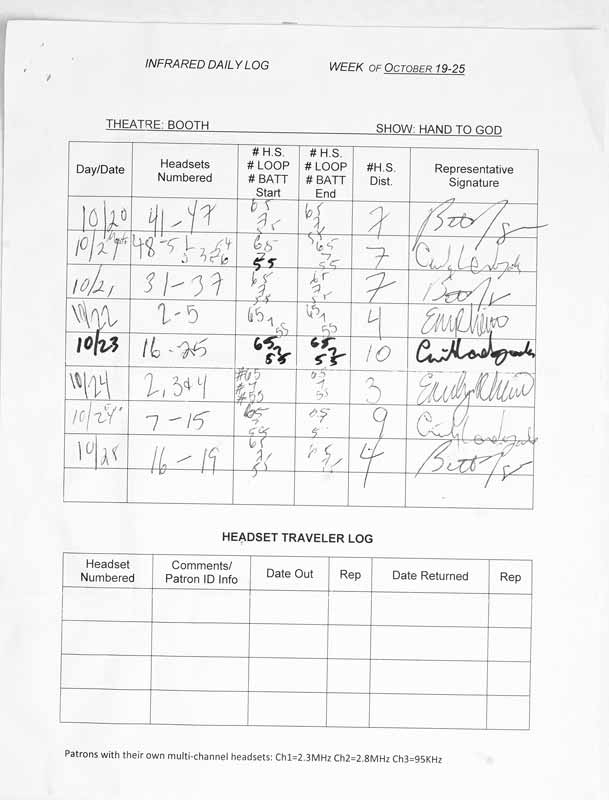 INFRARED DAILY LOG WEEK OF OCTOBER 19-25
THEATRE: BOOTH SHOW: HAND TO GOD
Day/Date Headsets Numbered # H.S. # LOOP # BATT Start # H.S. # LOOP # BATT End #H.S. Dist. Representative Signature
10/20 41-47 65 7 55 65 7 55 7
48-51 65 7 55 65 7 55 7
10/21 31-37 65 7 55 65 7 55 7
10/22 2-5 65 7 55 65 7 55 4
10/23 16-25 65 7 55 65 7 55 10
10/24 2,3&4 #65 #7 #55 65 7 55 3
10/24 7-15 65 65 9
10/25 16-19 65 7 55 65 7 55 4
HEADSET TRAVELER LOG
Headset Numbered Comments/ Patron ID Info Date Out Rep Date Returned Rep
Patrons with their own multi-channel headsets: Ch1=2.3MHz Ch2=2.8MHz Ch3=95KHz